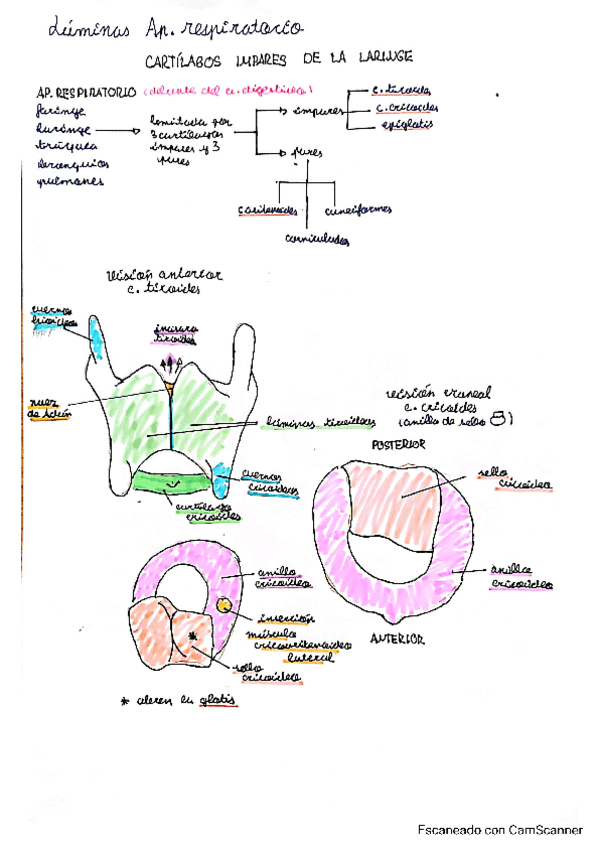 Láminas Ap. respiratorio
CARTÍLAGOS IMPARES DE LA LARINGE
AP. RESPIRATORIO (delante del a. digestivo)
faringe
laringe
tráquea
bronquios
pulmones
limitada por
3 cartílagos
impares y 3
pares
impares
c. tiroides
c. cricoides
epiglotis
pares
aritenoides
cuneiformes
corniculados
visión anterior
c. tiroides
cuernos
hioideos
incisura
tiroidea
nuez
de Adán
láminas tiroideas
cuernos
cricoideos
cartílago
cricoides
visión craneal
c. cricoides
(anillo de sello)
POSTERIOR
sello
cricoideo
anillo
cricoideo
ANTERIOR
anillo
cricoideo
inserción
músculo
cricoaritenoideo
lateral
sello
cricoideo
* abren la glotis
Escaneado con CamScanner